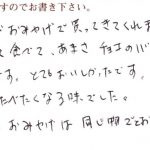 すのでお書き下さい。
おみやげで買ってきてくれま
て食べて、あまさ チョコのバ
す。とてもおいしかったです。
たべたくなる味でした。
おみやげは同じ物でとお